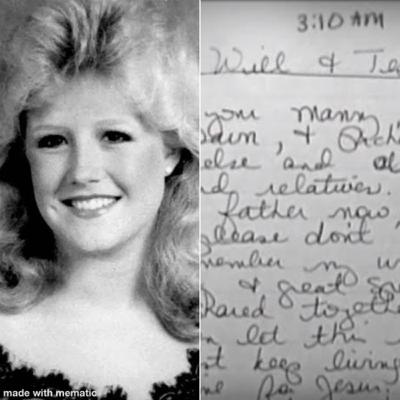 3:10 AM
Will & Te
you
awn, & Rich
else and al
nd relatives.
father now,
please don't
member my wi
& great spe
hared togethe
let this
t keep living
me for Jesus
made with mematic